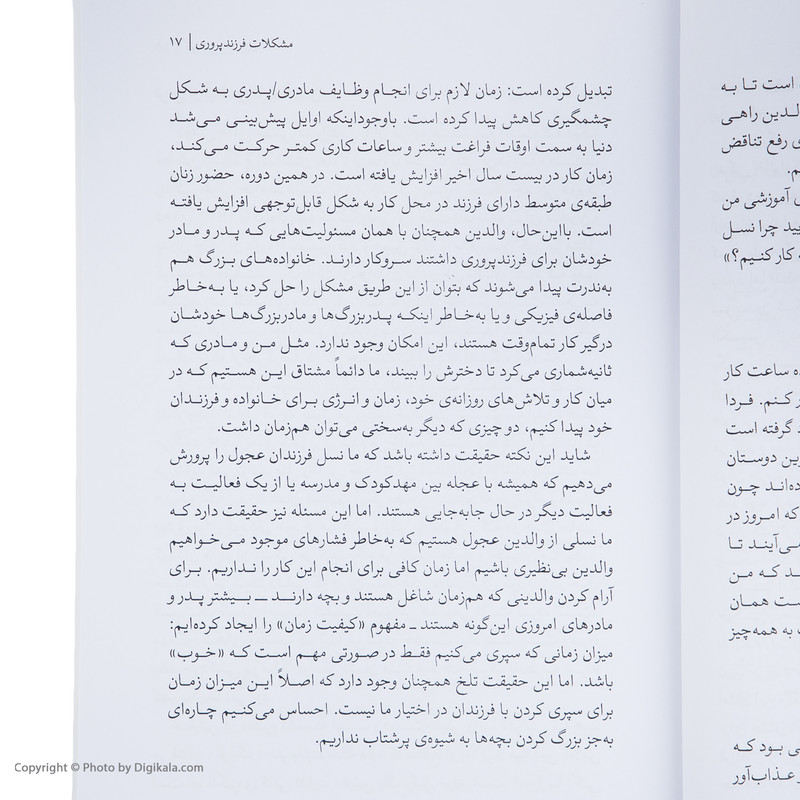 مشکلات فرزندپروری | ۱۷
تبدیل کرده است: زمان لازم برای انجام وظایف مادری/پدری به شکل
چشمگیری کاهش پیدا کرده است. باوجوداینکه اوایل پیش‌بینی می‌شد
دنیا به سمت اوقات فراغت بیشتر و ساعات کاری کمتر حرکت می‌کند،
زمان کار در بیست سال اخیر افزایش یافته است. در همین دوره، حضور زنان
طبقه‌ی متوسط دارای فرزند در محل کار به شکل قابل‌توجهی افزایش یافته
است. بااین‌حال، والدین همچنان با همان مسئولیت‌هایی که پدر و مادر
خودشان برای فرزندپروری داشتند سروکار دارند. خانواده‌های بزرگ هم
به‌ندرت پیدا می‌شوند که بتوان از این طریق مشکل را حل کرد، یا به‌خاطر
فاصله‌ی فیزیکی و یا به‌خاطر اینکه پدربزرگ‌ها و مادربزرگ‌ها خودشان
درگیر کار تمام‌وقت هستند، این امکان وجود ندارد. مثل من و مادری که
ثانیه‌شماری می‌کرد تا دخترش را ببیند، ما دائماً مشتاق این هستیم که در
میان کار و تلاش‌های روزانه‌ی خود، زمان و انرژی برای خانواده و فرزندان
خود پیدا کنیم، دو چیزی که دیگر به‌سختی می‌توان هم‌زمان داشت.
شاید این نکته حقیقت داشته باشد که ما نسل فرزندان عجول را پرورش
می‌دهیم که همیشه با عجله بین مهدکودک و مدرسه یا از یک فعالیت به
فعالیت دیگر در حال جابه‌جایی هستند. اما این مسئله نیز حقیقت دارد که
ما نسلی از والدین عجول هستیم که به‌خاطر فشارهای موجود می‌خواهیم
والدین بی‌نظیری باشیم اما زمان کافی برای انجام این کار را نداریم. برای
آرام کردن والدینی که هم‌زمان شاغل هستند و بچه دارند ــ بیشتر پدر و
مادرهای امروزی این‌گونه هستند ــ مفهوم «کیفیت زمان» را ایجاد کرده‌ایم:
میزان زمانی که سپری می‌کنیم فقط در صورتی مهم است که «خوب»
باشد. اما این حقیقت تلخ همچنان وجود دارد که اصلاً این میزان زمان
برای سپری کردن با فرزندان در اختیار ما نیست. احساس می‌کنیم چاره‌ای
به‌جز بزرگ کردن بچه‌ها به شیوه‌ی پرشتاب نداریم.
است تا به
لدین راهی
ی رفع تناقض
م.
آموزشی من
یید چرا نسل
کار کنیم؟»
ه ساعت کار
ر کنم. فردا
گرفته است
ین دوستان
ده‌اند چون
که امروز در
می‌آیند تا
د که من
ست همان
به همه‌چیز
ی بود که
و عذاب‌آور
Copyright © Photo by Digikala.com